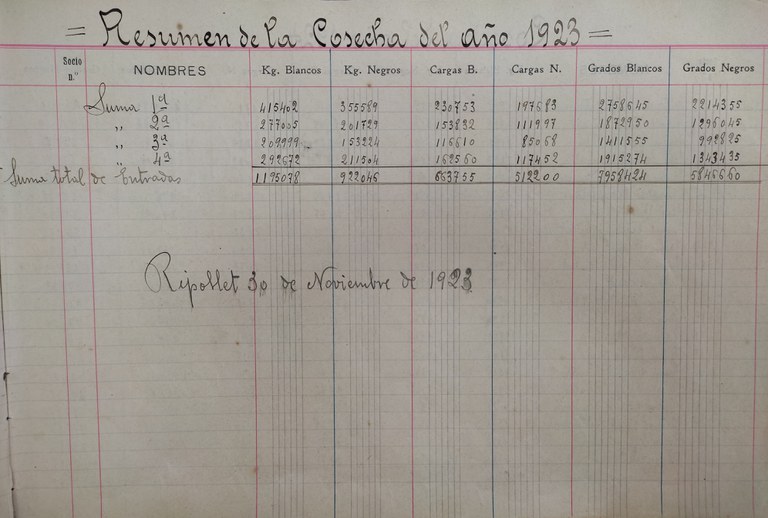 = Resumen de la Cosecha del año 1923 =
Socio n.º NOMBRES Kg. Blancos Kg. Negros Cargas B. Cargas N. Grados Blancos Grados Negros
Suma 1ª 415402 355589 230753 197683 2758645 2214355
„ 2ª 277005 201729 153832 111997 1872950 1296045
„ 3ª 209999 153224 116610 85068 1411555 992825
„ 4ª 292672 211504 162560 117452 1915274 1343435
Suma total de Entradas 1195078 922046 663755 512200 7958424 5846660
Ripollet 30 de Noviembre de 1923